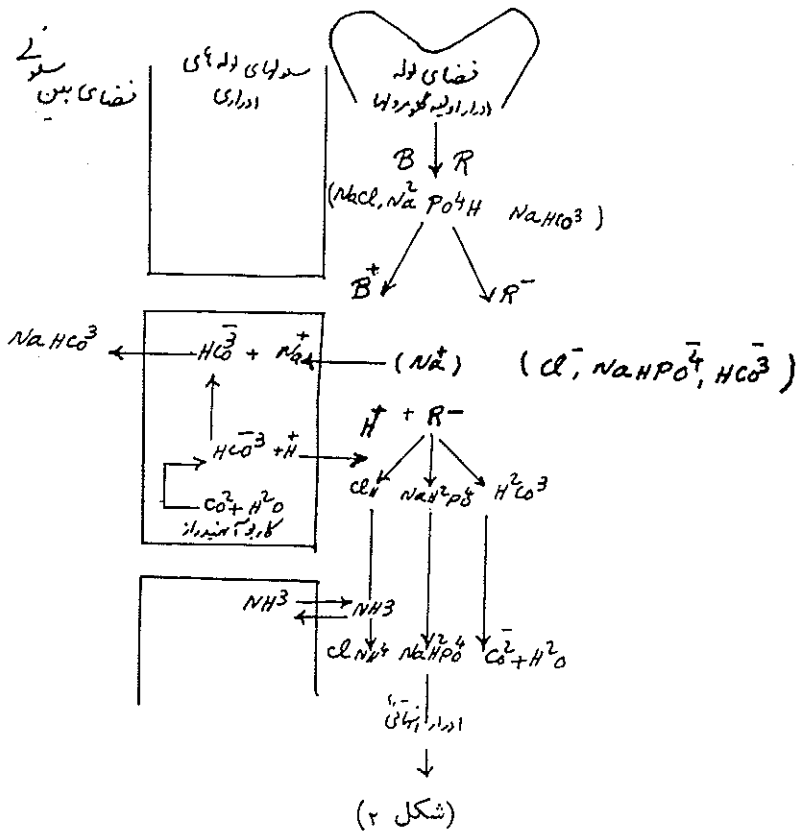 فضای بین سلولی
سلولهای لوله های
ادراری
فضای لوله
ادرار اولیه گلومرولها
B R
(NaCl, Na² Po⁴H NaHCo³)
B⁺ R⁻
NaHCo³ HCo³⁻ + Na⁺ (Na⁺) (Cl⁻, NaHPo⁴⁻, HCo³⁻)
H⁺ + R⁻
HCo³⁻ + H⁺
ClH NaH²Po⁴ H²Co³
Co² + H²O
کاربو آنیدراز
NH³ NH³
ClNH⁴ NaH²Po⁴ Co²⁻ + H²O
ادرار نهائی
(شکل ۲)